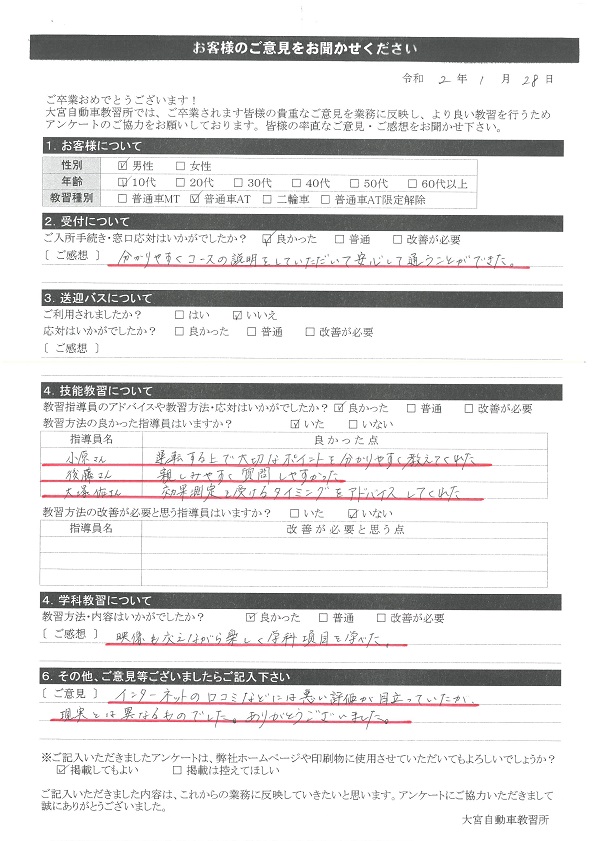 お客様のご意見をお聞かせください
令和 2 年 1 月 28 日
ご卒業おめでとうございます！
大宮自動車教習所では、ご卒業されます皆様の貴重なご意見を業務に反映し、より良い教習を行うため
アンケートのご協力をお願いしております。皆様の率直なご意見・ご感想をお聞かせ下さい。
1. お客様について
性別 ☑ 男性 □ 女性
年齢 ☑ 10代 □ 20代 □ 30代 □ 40代 □ 50代 □ 60代以上
教習種別 □ 普通車MT ☑ 普通車AT □ 二輪車 □ 普通車AT限定解除
2. 受付について
ご入所手続き・窓口応対はいかがでしたか？ ☑ 良かった □ 普通 □ 改善が必要
［ ご感想 ］ 分かりやすくコースの説明をしていただいて安心して通うことができた。
3. 送迎バスについて
ご利用されましたか？ □ はい ☑ いいえ
応対はいかがでしたか？ □ 良かった □ 普通 □ 改善が必要
［ ご感想 ］
4. 技能教習について
教習指導員のアドバイスや教習方法・応対はいかがでしたか？ ☑ 良かった □ 普通 □ 改善が必要
教習方法の良かった指導員はいますか？ ☑ いた □ いない
指導員名 良かった点
小原さん 運転する上で大切なポイントを分かりやすく教えてくれた
後藤さん 親しみやすく質問しやすかった
大塚佑さん 効果測定を受けるタイミングをアドバイスしてくれた
教習方法の改善が必要と思う指導員はいますか？ □ いた ☑ いない
指導員名 改善が必要と思う点
4. 学科教習について
教習方法・内容はいかがでしたか？ ☑ 良かった □ 普通 □ 改善が必要
［ ご感想 ］ 映像も交えながら楽しく学科項目を学べた。
6. その他、ご意見等ございましたらご記入下さい
［ ご意見 ］ インターネットの口コミなどには悪い評価が目立っていたが、
現実とは異なるものでした。ありがとうございました。
※ご記入いただきましたアンケートは、弊社ホームページや印刷物に使用させていただいてもよろしいでしょうか？
☑ 掲載してもよい □ 掲載は控えてほしい
ご記入いただきました内容は、これからの業務に反映していきたいと思います。アンケートにご協力いただきまして
誠にありがとうございました。
大宮自動車教習所